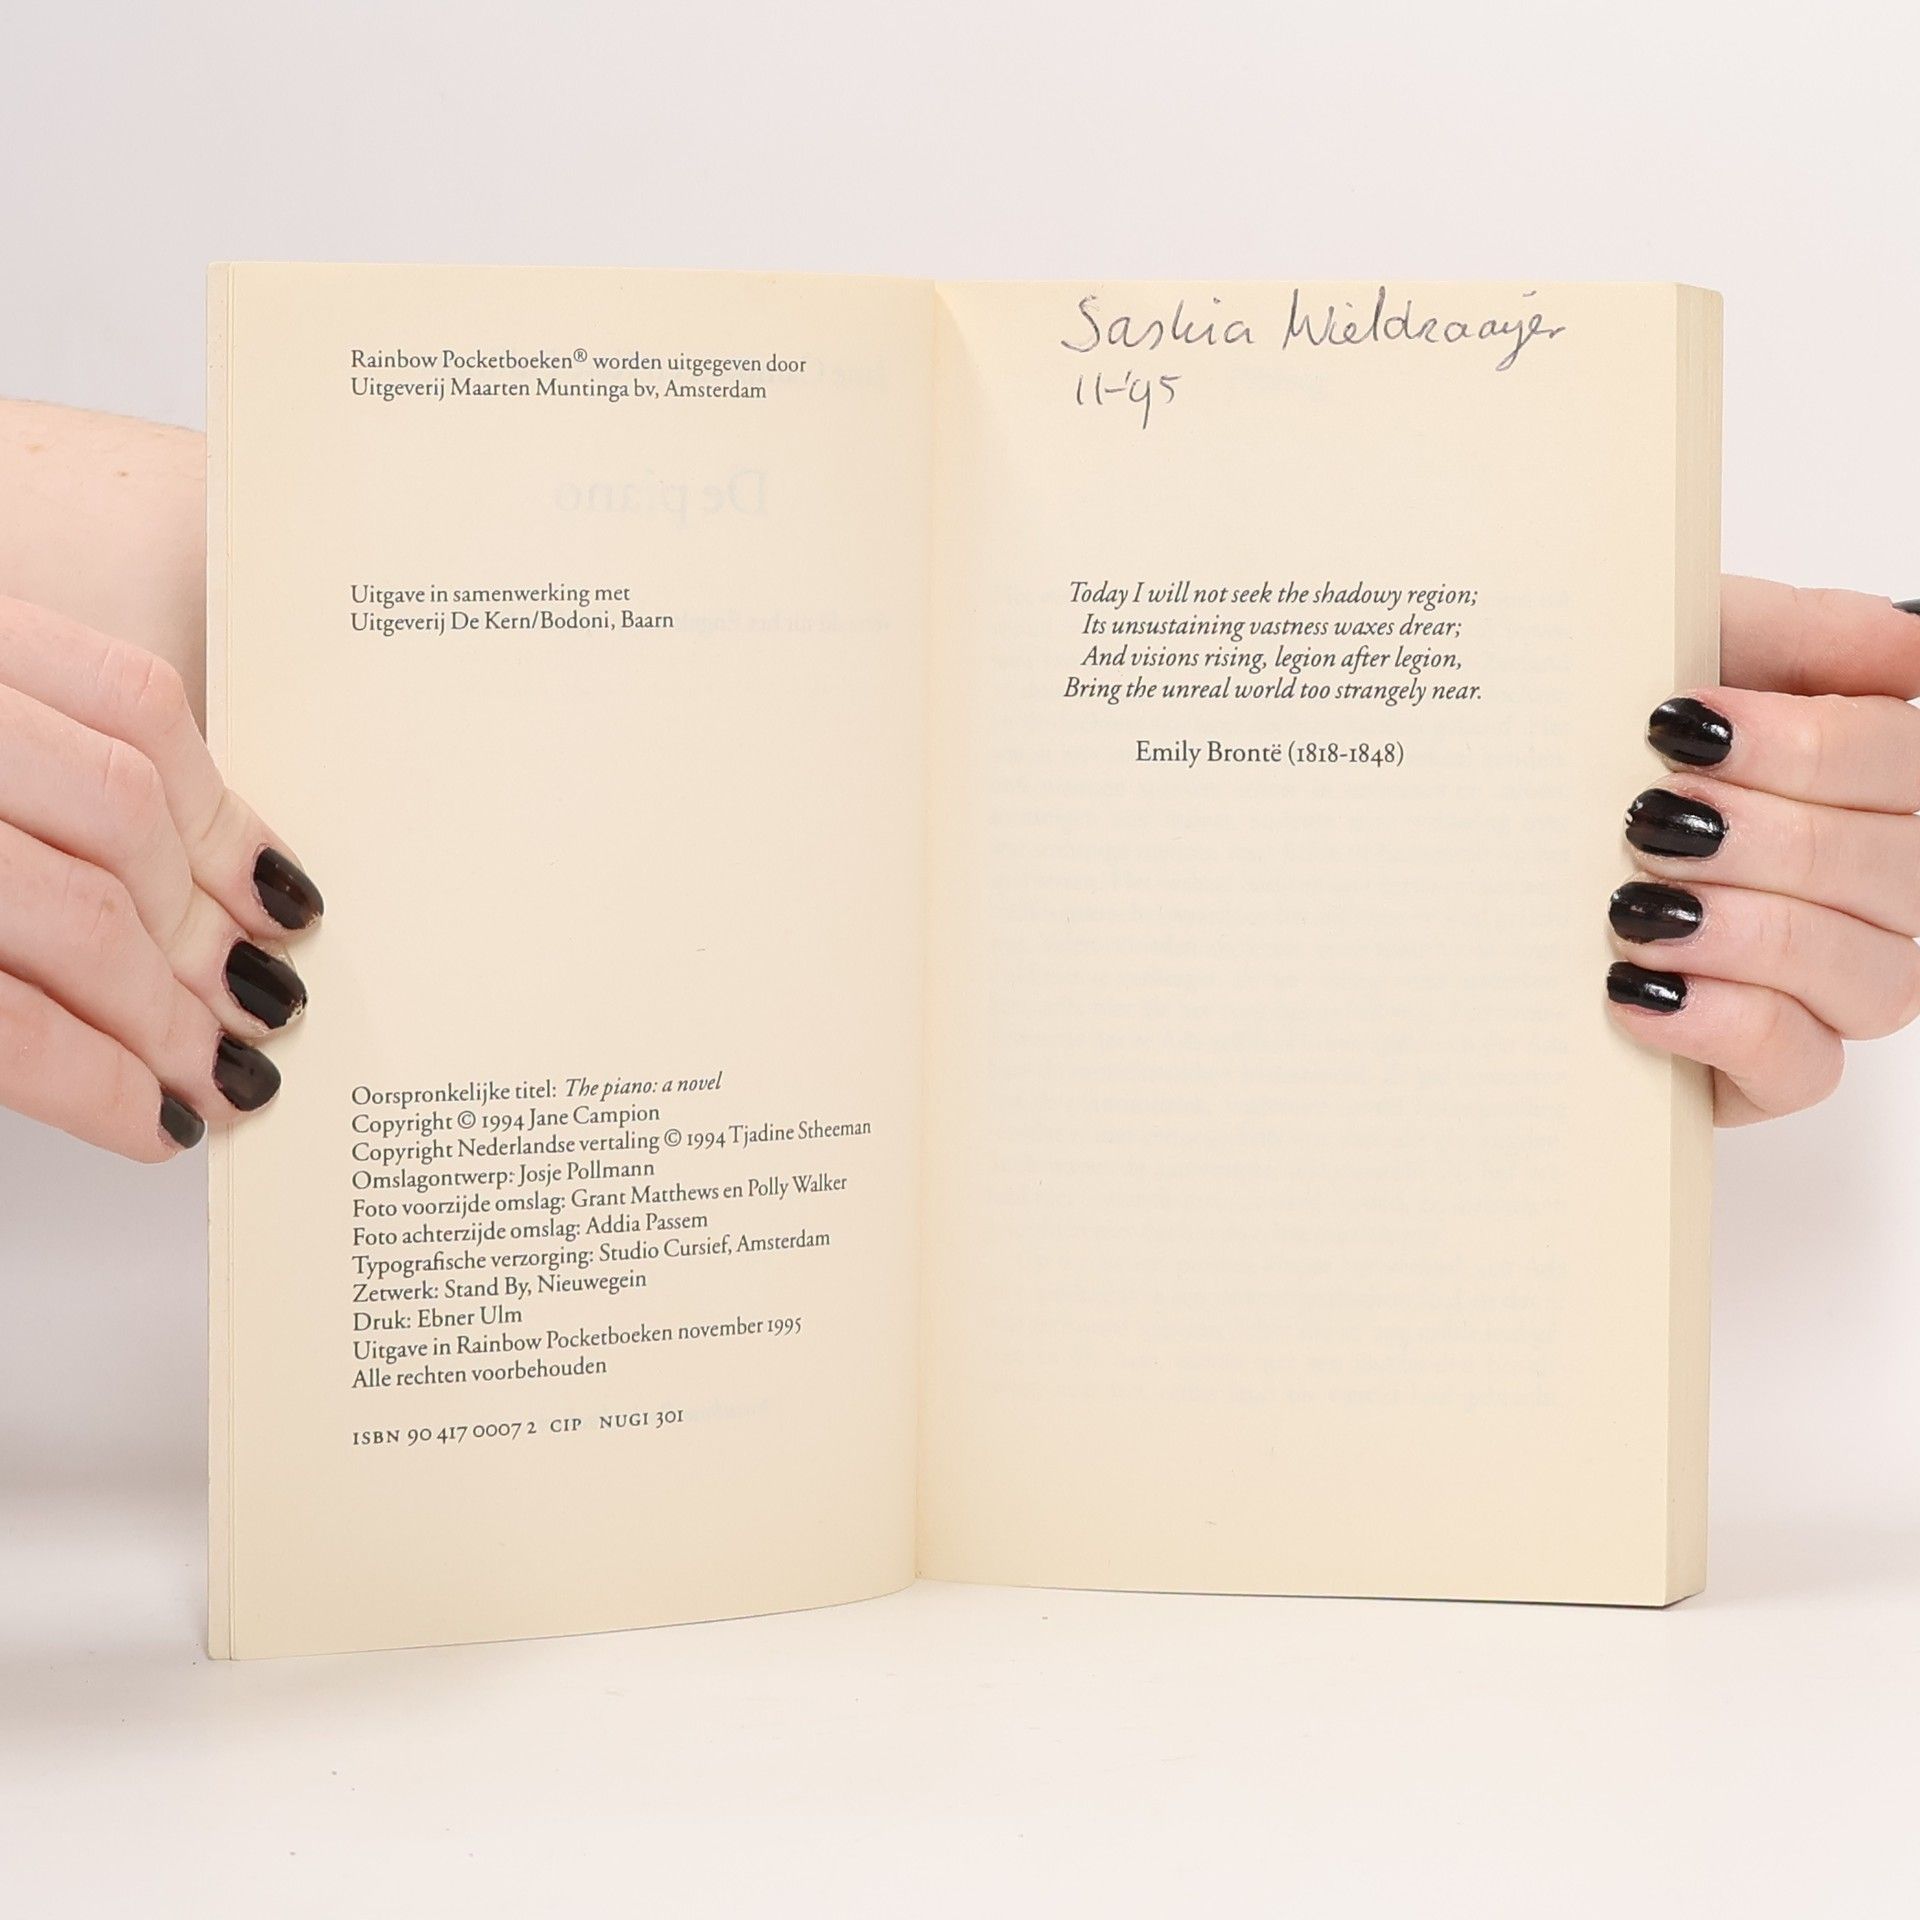 Rainbow Pocketboeken® worden uitgegeven door
Uitgeverij Maarten Muntinga bv, Amsterdam
Uitgave in samenwerking met
Uitgeverij De Kern/Bodoni, Baarn
Oorspronkelijke titel: The piano: a novel
Copyright © 1994 Jane Campion
Copyright Nederlandse vertaling © 1994 Tjadine Stheeman
Omslagontwerp: Josje Pollmann
Foto voorzijde omslag: Grant Matthews en Polly Walker
Foto achterzijde omslag: Addia Passem
Typografische verzorging: Studio Cursief, Amsterdam
Zetwerk: Stand By, Nieuwegein
Druk: Ebner Ulm
Uitgave in Rainbow Pocketboeken november 1995
Alle rechten voorbehouden
ISBN 90 417 0007 2 CIP NUGI 301
Saskia Wieldraayer
11-'95
Today I will not seek the shadowy region;
Its unsustaining vastness waxes drear;
And visions rising, legion after legion,
Bring the unreal world too strangely near.
Emily Brontë (1818-1848)